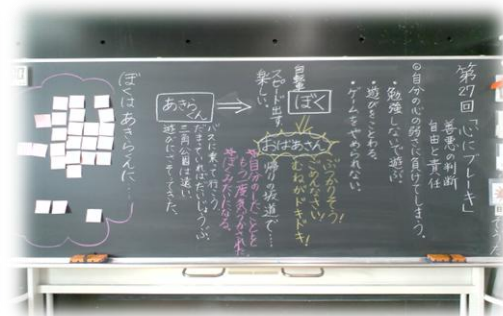 第27回「心にブレーキ」
善悪の判断
自由と責任
◎自分の心の弱さに負けてしまう。
・勉強しないで遊ぶ。
・遊びをことわる。
・ゲームをやめられない。
自転車
ぼく
スピード出す。
楽しい。
おばあさん
ぶつかりそう!
ごめんなさい!
むねがドキドキ!
帰りの坂道で…
自分のしたことと
もう一度きづかされた。
あきらくん
バスに乗って行こう
だまっていればだいじょうぶ。
三角公園は遠い
遊びにさそってきた。
ぼくはあきらくんに…